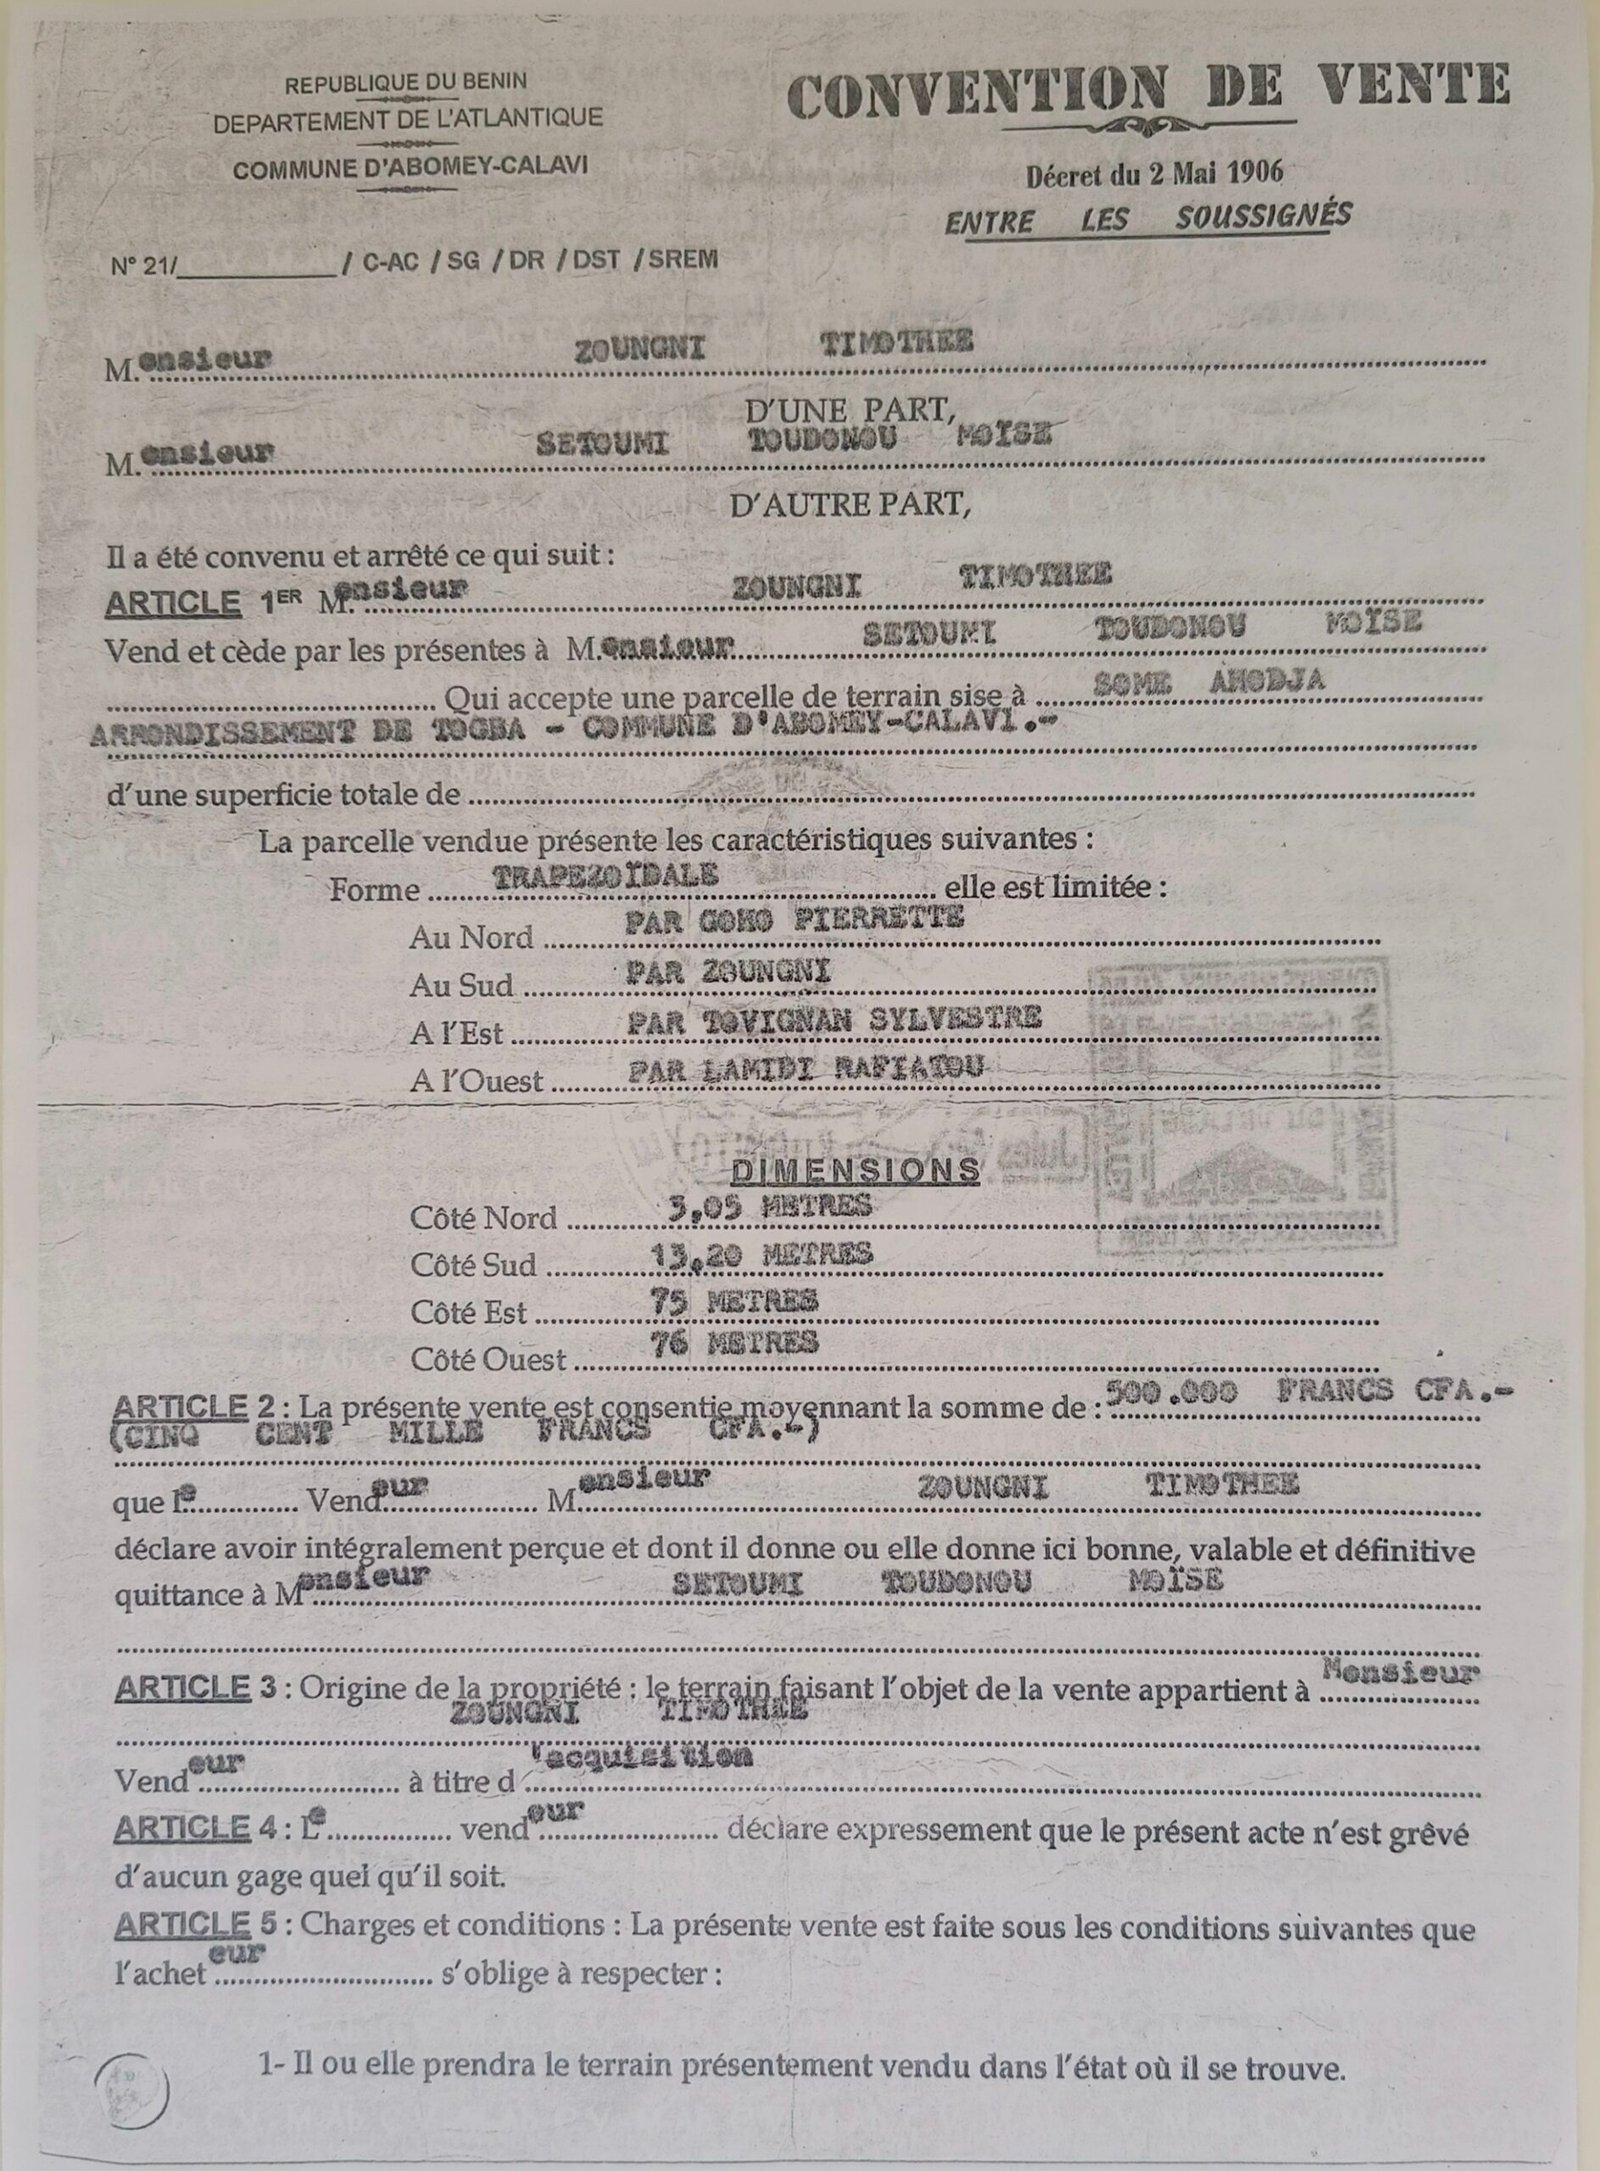 REPUBLIQUE DU BENIN
DEPARTEMENT DE L'ATLANTIQUE
COMMUNE D'ABOMEY-CALAVI
N° 21/____________/ C-AC / SG / DR / DST / SREM
CONVENTION DE VENTE
Décret du 2 Mai 1906
ENTRE LES SOUSSIGNÉS
M.onsieur ZOUNGNI TIMOTHEE
D'UNE PART,
M.onsieur SETOUMI TOUDONOU MOÏSE
D'AUTRE PART,
Il a été convenu et arrêté ce qui suit :
ARTICLE 1ER M.onsieur ZOUNGNI TIMOTHEE
Vend et cède par les présentes à M.onsieur SETOUMI TOUDONOU MOÏSE
Qui accepte une parcelle de terrain sise à SOME AHODJA
ARRONDISSEMENT DE TOGBA - COMMUNE D'ABOMEY-CALAVI.-
d'une superficie totale de
La parcelle vendue présente les caractéristiques suivantes :
Forme TRAPEZOÏDALE elle est limitée :
Au Nord PAR GOHO PIERRETTE
Au Sud PAR ZOUNGNI
A l'Est PAR TOVIGNAN SYLVESTRE
A l'Ouest PAR LAMIDI RAFIATOU
DIMENSIONS
Côté Nord 3,05 METRES
Côté Sud 13,20 METRES
Côté Est 75 METRES
Côté Ouest 76 METRES
ARTICLE 2 : La présente vente est consentie moyennant la somme de : 500.000 FRANCS CFA.-
(CINQ CENT MILLE FRANCS CFA.-)
que le Vendeur Monsieur ZOUNGNI TIMOTHEE
déclare avoir intégralement perçue et dont il donne ou elle donne ici bonne, valable et définitive
quittance à Monsieur SETOUMI TOUDONOU MOÏSE
ARTICLE 3 : Origine de la propriété : le terrain faisant l'objet de la vente appartient à Monsieur
ZOUNGNI TIMOTHEE
Vendeur à titre d'acquisition
ARTICLE 4 : Le vendeur déclare expressement que le présent acte n'est grêvé
d'aucun gage quel qu'il soit.
ARTICLE 5 : Charges et conditions : La présente vente est faite sous les conditions suivantes que
l'acheteur s'oblige à respecter :
1- Il ou elle prendra le terrain présentement vendu dans l'état où il se trouve.